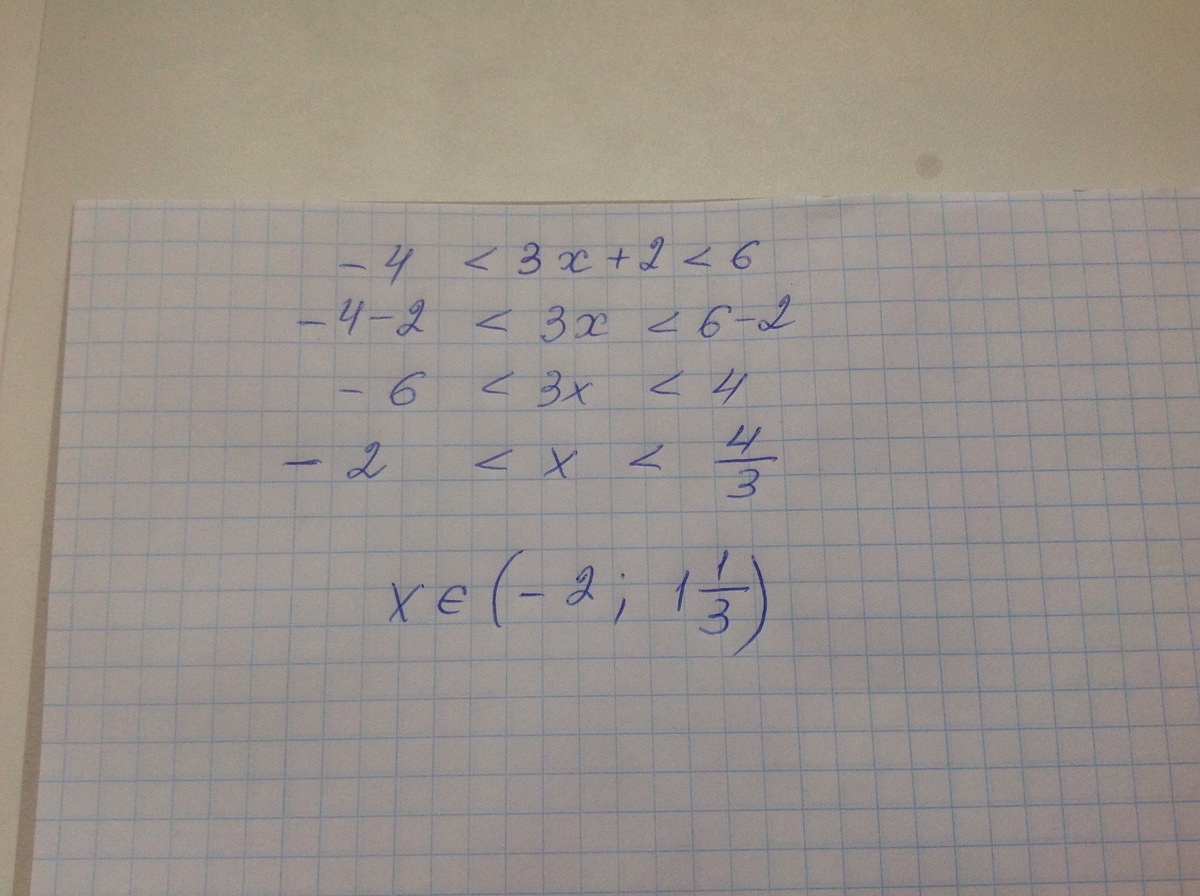 -4 < 3x+2 < 6
-4-2 < 3x < 6-2
-6 < 3x < 4
-2 < x < 4/3
x ∈ (-2; 1 1/3)